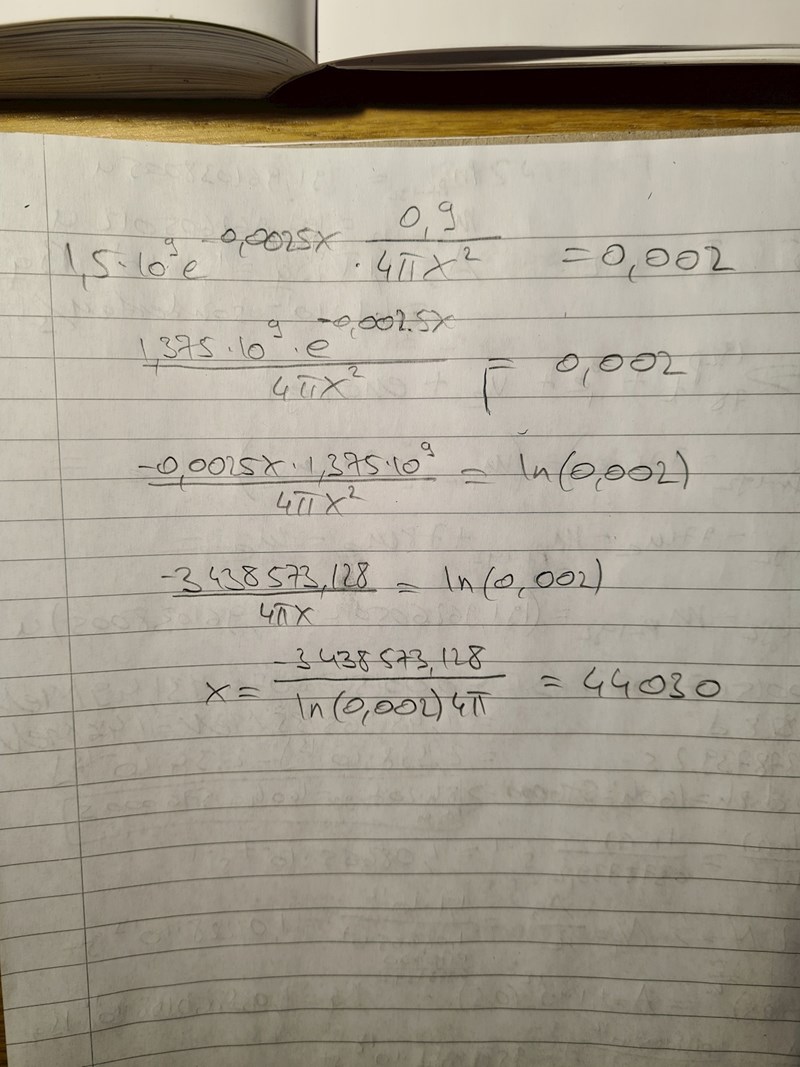 1,5·10⁹e^(-0,0025x) · 0,9/(4πx²) = 0,002
1,375·10⁹·e^(-0,0025x)/(4πx²) = 0,002
-0,0025x·1,375·10⁹/(4πx²) = ln(0,002)
-3438573,128/(4πx) = ln(0,002)
x = -3438573,128/(ln(0,002)4π) = 44030